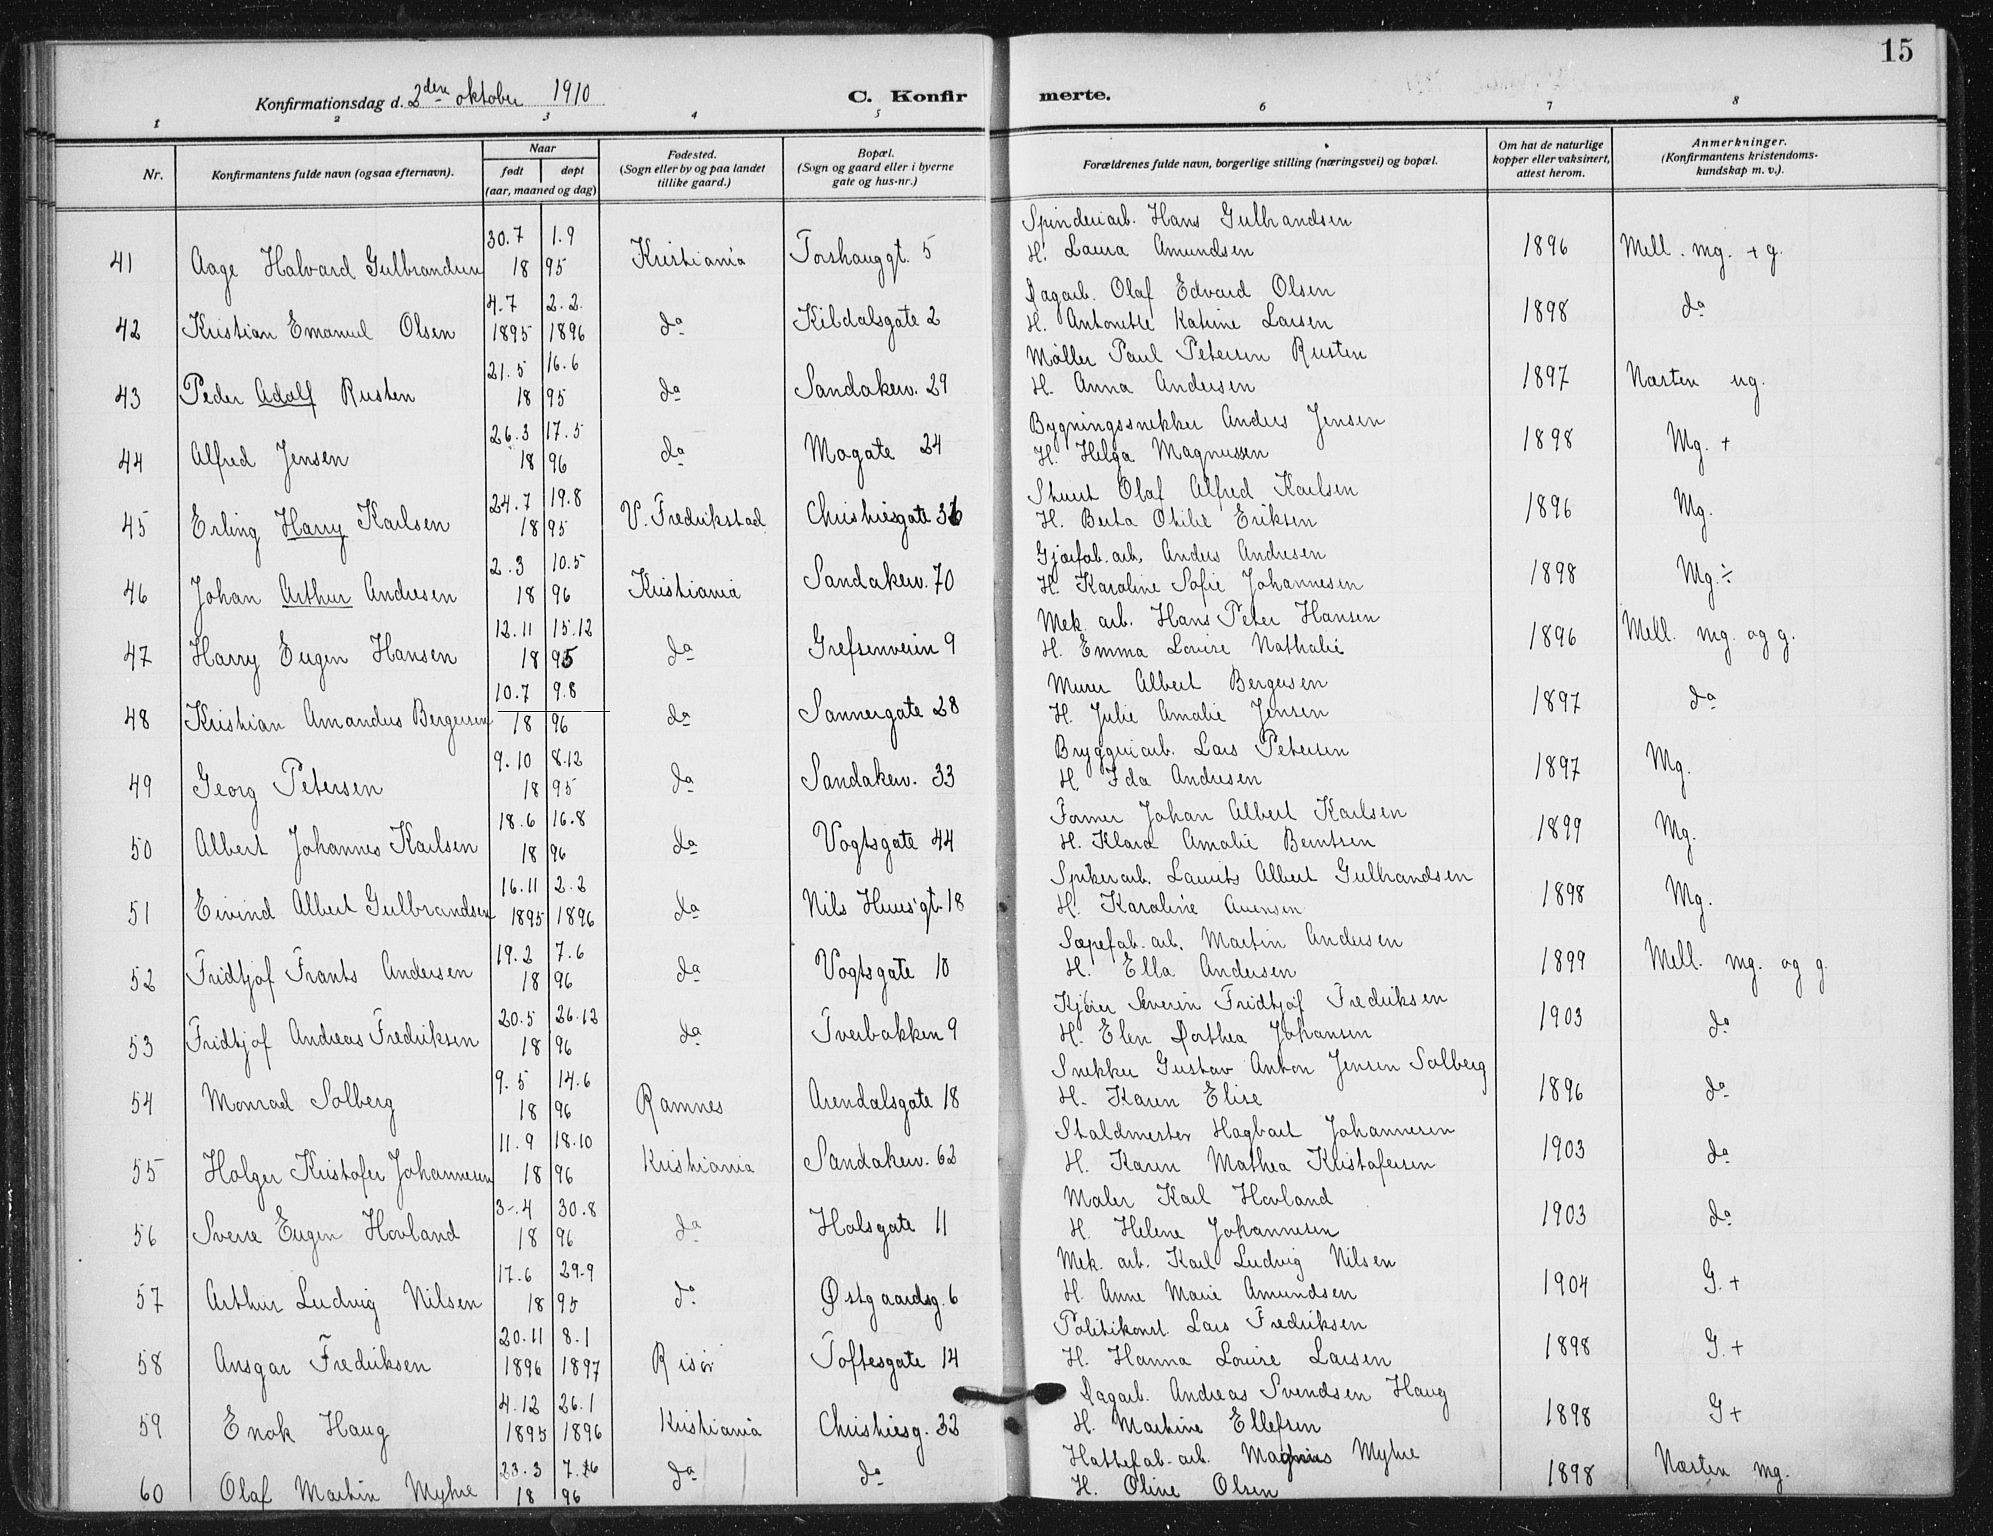 15
Konfirmationsdag d. 2den oktober 1910
C. Konfir merte.
1 2 3 4 5 6 7 8
Nr.
Konfirmantens fulde navn (ogsaa efternavn).
Naar
født døpt
(aar, maaned og dag)
Fødested.
(Sogn eller by og paa landet
tillike gaard.)
Bopæl.
(Sogn og gaard eller i byerne
gate og hus-nr.)
Forældrenes fulde navn, borgerlige stilling (næringsvei) og bopæl.
Om hat de naturlige
kopper eller vaksinert,
attest herom.
Anmerkninger.
(Konfirmantens kristendoms-
kundskap m. v.).
30.7 1.9 Spinderiarb. Hans Gulbrandsen
41 Aage Halvard Gulbrandsen 18 95 Kristiania Torshauggt. 5 H. Laura Amundsen 1896 Mell. mg. + g.
4.7 2.2. Dagarb. Olaf Edvard Olsen
42 Kristian Emanuel Olsen 1895 1896 do Kildalsgate 2 H. Antonette Katrine Larsen 1898 do
21.5 16.6 Møller Paul Petersen Rusten
43 Peder Adolf Rusten 18 95 do Sandakerv. 29 H. Anna Andersen 1897 Næsten mg.
26.3 17.5 Bygningssnekker Anders Jensen
44 Alfred Jensen 18 96 do Mogate 24 H. Helga Magnussen 1898 Mg. +
24.7 19.8 Stuert Olaf Alfred Karlsen
45 Erling Harry Karlsen 18 95 V. Fredrikstad Christiesgate 36 H. Berta Otilie Eriksen 1896 Mg.
2.3 10.5 Gjærfab. arb. Anders Andresen
46 Johan Arthur Andresen 18 96 Kristiania Sandakerv. 70 H. Karoline Sofie Johannesen 1898 Mg. ÷
12.11 15.12 Mek. arb. Hans Peter Hansen
47 Harry Eugen Hansen 18 95 do Grefsenveien 9 H. Emma Lovise Nathalie 1896 Mell. mg. og g.
10.7 9.8 Murer Albert Bergersen
48 Kristian Amandus Bergersen 18 96 do Sannergate 28 H. Julie Amalie Jensen 1897 do
9.10 8.12 Bryggeriarb. Lars Petersen
49 Georg Petersen 18 95 do Sandakerv. 33 H Ida Andresen 1897 Mg.
18.6 16.8 Former Johan Albert Karlsen
50 Albert Johannes Karlsen 18 96 do Vogtsgate 44 H. Klara Amalie Berntsen 1899 Mg.
16.11 2.2 Spikerarb. Laurits Albert Gulbrandsen
51 Eivind Albert Gulbrandsen 1895 1896 do Nils Huus'gt. 18 H. Karoline Auensen 1898 Mg.
19.2 7.6 Sæpefab. arb. Martin Andersen
52 Fridtjof Frants Andersen 18 96 do Vogtsgate 10 H. Ella Andersen 1899 Mell. mg. og g.
20.5 26.12 Kjører Severin Fridtjof Fredriksen
53 Fridtjof Andreas Fredriksen 18 96 do Tverbakken 9 H. Elen Dorthea Johansen 1903 do
9.5 14.6 Snekker Gustav Anton Jensen Solberg
54 Monrad Solberg 18 96 Ramnes Arendalsgate 18 H. Karen Elise 1896 do
11.9 18.10 Staldmester Hagbart Johannesen
55 Holger Kristofer Johannesen 18 96 Kristiania Sandakerv. 62 H. Karen Mathea Kristofersen 1903 do
3.4 30.8 Maler Karl Hovland
56 Sverre Eugen Hovland 18 96 do Holsgate 11 H. Helene Johannesen 1903 do
17.6 29.9 Mek. arb. Karl Ludvig Nilsen
57 Arthur Ludvig Nilsen 18 95 do Østgaardsg. 6 H. Anne Marie Amundsen 1904 G. +
20.11 8.1 Politikonst. Lars Fredriksen
58 Ansgar Fredriksen 1896 1897 Risør Toftesgate 14 H. Hanna Lovise Larsen 1898 G. +
4.12 26.1 Dagarb. Andreas Svendsen Haug
59 Enok Haug 1895 1896 Kristiania Christiesg. 32 H. Martine Ellefsen 1898 G +
23.3 7.6 Hattefab. arb. Magnus Myhre
60 Olaf Martin Myhre 18 96 do do H. Oline Olsen 1898 Næsten mg.